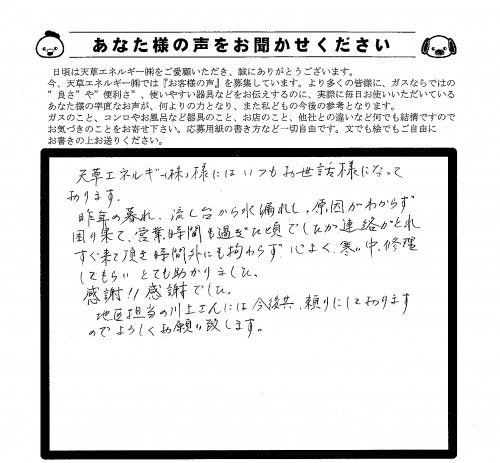 あなた様の声をお聞かせください
日頃は天草エネルギー㈱をご愛顧いただき、誠にありがとうございます。
今、天草エネルギー㈱では『お客様の声』を募集しています。より多くの皆様に、ガスならではの
”良さ”や”便利さ”、使いやすい器具などをお伝えするのに、実際に毎日お使いいただいている
あなた様の率直なお声が、何よりの力となり、また私どもの今後の参考となります。
ガスのこと、コンロやお風呂など器具のこと、お店のこと、他社との違いなど何でも結構ですので
お気づきのことをお寄せ下さい。応募用紙の書き方など一切自由です。文でも絵でもご自由に
お書きの上お送りください。
天草エネルギー(株)様にはいつもお世話様になって
おります.
昨年の暮れ、流し台から水漏れし、原因がわからず
困り果て、営業時間も過ぎひ頃でしたが連絡がとれ
すぐ来て頂き時間外にも拘わらず、心よく、寒い中、修理
してもらい とても助かりました、
感謝!! 感謝でした。
地区担当の川上さんには今後共、頼りにしております
のでよろしくお願い致します。